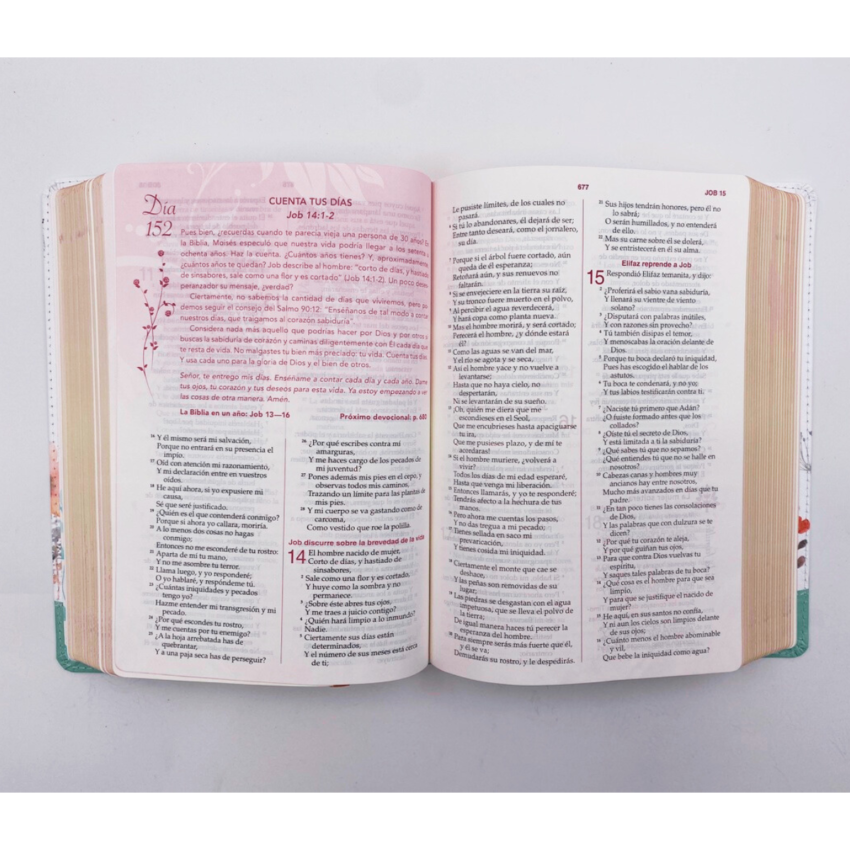 Día
152
CUENTA TUS DÍAS
Job 14:1-2
Pues bien, ¿recuerdas cuando te parecía vieja una persona de 30 años? En
la Biblia, Moisés especuló que nuestra vida podría llegar a los setenta u
ochenta años. Haz la cuenta. ¿Cuántos años tienes? Y, aproximadamente,
¿cuántos años te quedan? Job describe al hombre: "corto de días, y hastiado
de sinsabores, sale como una flor y es cortado" (Job 14:1-2). Un poco deses-
peranzador su mensaje, ¿verdad?
Ciertamente, no sabemos la cantidad de días que viviremos, pero po-
demos seguir el consejo del Salmo 90:12: "Enséñanos de tal modo a contar
nuestros días, que traigamos al corazón sabiduría".
Considera nada más aquello que podrías hacer por Dios y por otros si
buscas la sabiduría de corazón y caminas diligentemente con Él cada día que
te resta de vida. No malgastes tu bien más preciado: tu vida. Cuenta tus días.
Y usa cada uno para la gloria de Dios y el bien de otros.
Señor, te entrego mis días. Enséñame a contar cada día y cada año. Dame
tus ojos, tu corazón y tus deseos para esta vida. Ya estoy empezando a ver
las cosas de otra manera. Amén.
La Biblia en un año: Job 13—16
Próximo devocional: p. 680
16 Y él mismo será mi salvación,
Porque no entrará en su presencia el
impío.
17 Oíd con atención mi razonamiento,
Y mi declaración entre en vuestros
oídos.
18 He aquí ahora, si yo expusiere mi
causa,
Sé que seré justificado.
19 ¿Quién es el que contenderá conmigo?
Porque si ahora yo callara, moriría.
20 A lo menos dos cosas no hagas
conmigo;
Entonces no me esconderé de tu rostro:
21 Aparta de mí tu mano,
Y no me asombre tu terror.
22 Llama luego, y yo responderé;
O yo hablaré, y respóndeme tú.
23 ¿Cuántas iniquidades y pecados
tengo yo?
Hazme entender mi transgresión y mi
pecado.
24 ¿Por qué escondes tu rostro,
Y me cuentas por tu enemigo?
25 ¿A la hoja arrebatada has de
quebrantar,
Y a una paja seca has de perseguir?
26 ¿Por qué escribes contra mí
amarguras,
Y me haces cargo de los pecados de
mi juventud?
27 Pones además mis pies en el cepo, y
observas todos mis caminos,
Trazando un límite para las plantas de
mis pies.
28 Y mi cuerpo se va gastando como de
carcoma,
Como vestido que roe la polilla.
Job discurre sobre la brevedad de la vida
14 El hombre nacido de mujer,
Corto de días, y hastiado de
sinsabores,
2 Sale como una flor y es cortado,
Y huye como la sombra y no
permanece.
3 ¿Sobre éste abres tus ojos,
Y me traes a juicio contigo?
4 ¿Quién hará limpio a lo inmundo?
Nadie.
5 Ciertamente sus días están
determinados,
Y el número de sus meses está cerca
de ti;
677
JOB 15
Le pusiste límites, de los cuales no
pasará.
6 Si tú lo abandonares, él dejará de ser;
Entre tanto deseará, como el jornalero,
su día.
7 Porque si el árbol fuere cortado, aún
queda de él esperanza;
Retoñará aún, y sus renuevos no
faltarán.
8 Si se envejeciere en la tierra su raíz,
Y su tronco fuere muerto en el polvo,
9 Al percibir el agua reverdecerá,
Y hará copa como planta nueva.
10 Mas el hombre morirá, y será cortado;
Perecerá el hombre, ¿y dónde estará
él?
11 Como las aguas se van del mar,
Y el río se agota y se seca,
12 Así el hombre yace y no vuelve a
levantarse;
Hasta que no haya cielo, no
despertarán,
Ni se levantarán de su sueño.
13 ¡Oh, quién me diera que me
escondieses en el Seol,
Que me encubrieses hasta apaciguarse
tu ira,
Que me pusieses plazo, y de mí te
acordaras!
14 Si el hombre muriere, ¿volverá a
vivir?
Todos los días de mi edad esperaré,
Hasta que venga mi liberación.
15 Entonces llamarás, y yo te responderé;
Tendrás afecto a la hechura de tus
manos.
16 Pero ahora me cuentas los pasos,
Y no das tregua a mi pecado;
17 Tienes sellada en saco mi
prevaricación,
Y tienes cosida mi iniquidad.
18 Ciertamente el monte que cae se
deshace,
Y las peñas son removidas de su
lugar;
19 Las piedras se desgastan con el agua
impetuosa, que se lleva el polvo de
la tierra;
De igual manera haces tú perecer la
esperanza del hombre.
20 Para siempre serás más fuerte que él,
y él se va;
Demudarás su rostro, y le despedirás.
21 Sus hijos tendrán honores, pero él no
lo sabrá;
O serán humillados, y no entenderá
de ello.
22 Mas su carne sobre él se dolerá,
Y se entristecerá en él su alma.
Elifaz reprende a Job
15 Respondió Elifaz temanita, y dijo:
2 ¿Proferirá el sabio vana sabiduría,
Y llenará su vientre de viento
solano?
3 ¿Disputará con palabras inútiles,
Y con razones sin provecho?
4 Tú también disipas el temor,
Y menoscabas la oración delante de
Dios.
5 Porque tu boca declaró tu iniquidad,
Pues has escogido el hablar de los
astutos.
6 Tu boca te condenará, y no yo;
Y tus labios testificarán contra ti.
7 ¿Naciste tú primero que Adán?
¿O fuiste formado antes que los
collados?
8 ¿Oíste tú el secreto de Dios,
Y está limitada a ti la sabiduría?
9 ¿Qué sabes tú que no sepamos?
¿Qué entiendes tú que no se halle en
nosotros?
10 Cabezas canas y hombres muy
ancianos hay entre nosotros,
Mucho más avanzados en días que tu
padre.
11 ¿En tan poco tienes las consolaciones
de Dios,
Y las palabras que con dulzura se te
dicen?
12 ¿Por qué tu corazón te aleja,
Y por qué guiñan tus ojos,
13 Para que contra Dios vuelvas tu
espíritu,
Y saques tales palabras de tu boca?
14 ¿Qué cosa es el hombre para que sea
limpio,
Y para que se justifique el nacido de
mujer?
15 He aquí, en sus santos no confía,
Y ni aun los cielos son limpios delante
de sus ojos;
16 ¿Cuánto menos el hombre abominable
y vil,
Que bebe la iniquidad como agua?